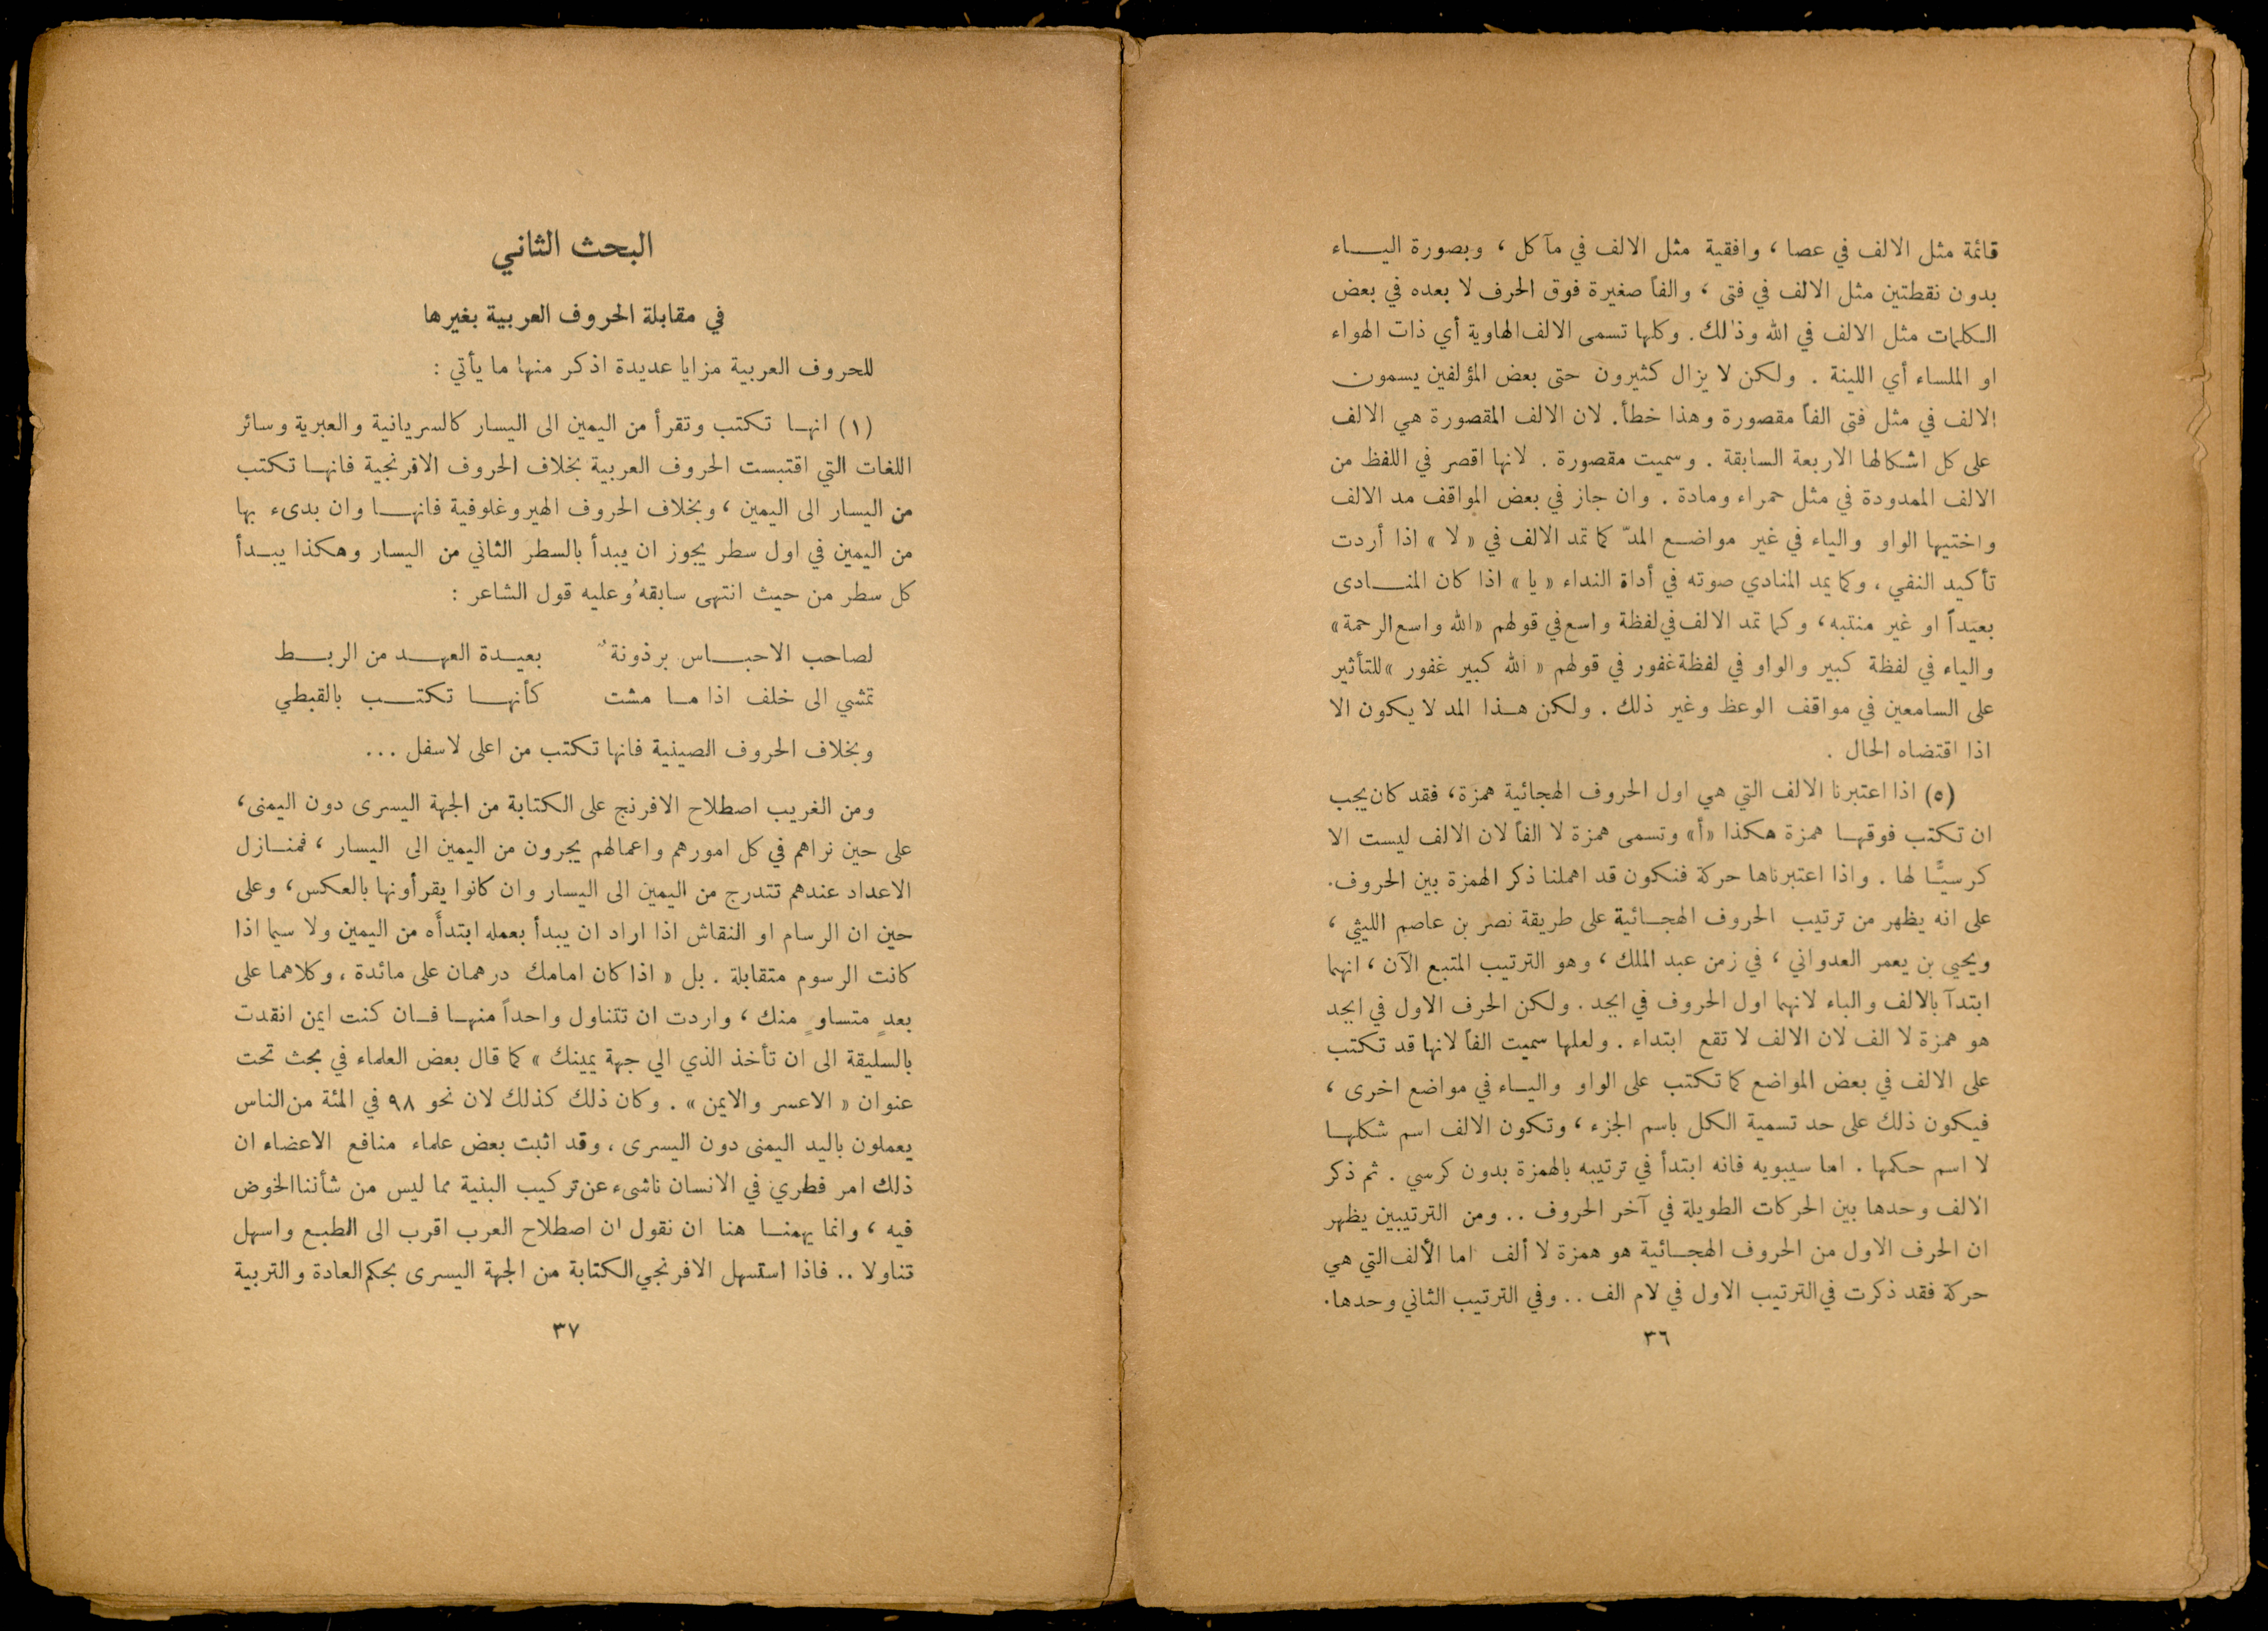 قائمة مثل الالف في عصا ، وافقية مثل الالف في مآكل ، وبصورة اليـــاء
بدون نقطتين مثل الالف في فتى ، والفاً صغيرة فوق الحرف لا بعده في بعض
الكلمات مثل الالف في الله وذٰلك . وكلها تسمى الالف الهاوية أي ذات الهواء
او الملساء أي اللينة . ولكن لا يزال كثيرون حتى بعض المؤلفين يسمون
الالف في مثل فتى الفاً مقصورة وهذا خطأ . لان الالف المقصورة هي الالف
على كل اشكالها الاربعة السابقة . وسميت مقصورة . لانها اقصر في اللفظ من
الالف الممدودة في مثل حمراء ومادة . وان جاز في بعض المواقف مد الالف
واختيها الواو والياء في غير مواضـع المدّ كما تمد الالف في « لا » اذا أردت
تأكيد النفي ، وكما يمد المنادي صوته في أداة النداء « يا » اذا كان المنـــادى
بعيداً او غير منتبه ، وكما تمد الالف في لفظة واسع في قولهم «الله واسع الرحمة»
والياء في لفظة كبير والواو في لفظة غفور في قولهم « الله كبير غفور » للتأثير
على السامعين في مواقف الوعظ وغير ذلك . ولكن هـذا المد لا يكون الا
اذا اقتضاه الحال .
(٥) اذا اعتبرنا الالف التي هي اول الحروف الهجائية همزة ، فقد كان يجب
ان تكتب فوقهـا همزة هكذا «أ» وتسمى همزة لا الفاً لان الالف ليست الا
كرسيًّـا لها . واذا اعتبرناها حركة فنكون قد اهملنا ذكر الهمزة بين الحروف .
على انه يظهر من ترتيب الحروف الهجـائية على طريقة نصر بن عاصم الليثي ،
ويحيى بن يعمر العدواني ، في زمن عبد الملك ، وهو الترتيب المتبع الآن ، انهما
ابتدآ بالالف والباء لانهما اول الحروف في ابجد . ولكن الحرف الاول في ابجد
هو همزة لا الف لان الالف لا تقع ابتداء . ولعلها سميت الفاً لانها قد تكتب
على الالف في بعض المواضع كما تكتب على الواو واليـاء في مواضع اخرى ،
فيكون ذلك على حد تسمية الكل باسم الجزء ، وتكون الالف اسم شكلهـا
لا اسم حكمها . اما سيبويه فانه ابتدأ في ترتيبه بالهمزة بدون كرسي . ثم ذكر
الالف وحدها بين الحركات الطويلة في آخر الحروف .. ومن الترتيبين يظهر
ان الحرف الاول من الحروف الهجـائية هو همزة لا ألف اما الألف التي هي
حركة فقد ذكرت في الترتيب الاول في لام الف .. وفي الترتيب الثاني وحدها .
٣٦
البحث الثاني
في مقابلة الحروف العربية بغيرها
للحروف العربية مزايا عديدة اذكر منها ما يأتي :
(١) انهـا تكتب وتقرأ من اليمين الى اليسار كالسريانية والعبرية وسائر
اللغات التي اقتبست الحروف العربية بخلاف الحروف الافرنجية فانهـا تكتب
من اليسار الى اليمين ، وبخلاف الحروف الهيروغلوفية فانهـــا وان بدىء بها
من اليمين في اول سطر يجوز ان يبدأ بالسطر الثاني من اليسار وهكذا يبــدأ
كل سطر من حيث انتهى سابقهُ وعليه قول الشاعر :
لصاحب الاحبـــاس برذونةٌ بعيــدة العهــد من الربــط
تمشي الى خلف اذا مـا مشت كأنهـــا تكتـــب بالقبطي
وبخلاف الحروف الصينية فانها تكتب من اعلى لاسفل ...
ومن الغريب اصطلاح الافرنج على الكتابة من الجهة اليسرى دون اليمنى ،
على حين نراهم في كل امورهم واعمالهم يجرون من اليمين الى اليسار ، فمنـازل
الاعداد عندهم تتدرج من اليمين الى اليسار وان كانوا يقرأونها بالعكس ، وعلى
حين ان الرسام او النقاش اذا اراد ان يبدأ بعمله ابتدأَه من اليمين ولا سيما اذا
كانت الرسوم متقابلة . بل « اذا كان امامك درهمان على مائدة ، وكلاهما على
بعدٍ متساوٍ منك ، واردت ان تتناول واحداً منهـا فـان كنت ايمن انقدت
بالسليقة الى ان تأخذ الذي الي جهة يمينك » كما قال بعض العلماء في بحث تحت
عنوان « الاعسر والايمن » . وكان ذلك كذلك لان نحو ٩٨ في المئة من الناس
يعملون باليد اليمنى دون اليسرى ، وقد اثبت بعض علماء منافع الاعضاء ان
ذلك امر فطري في الانسان ناشىء عن تركيب البنية مما ليس من شأننا الخوض
فيه ، وانما يهمنـا هنا ان نقول ان اصطلاح العرب اقرب الى الطبـع واسهل
تناولا .. فاذا استسهل الافرنجي الكتابة من الجهة اليسرى بحكم العادة والتربية
٣٧